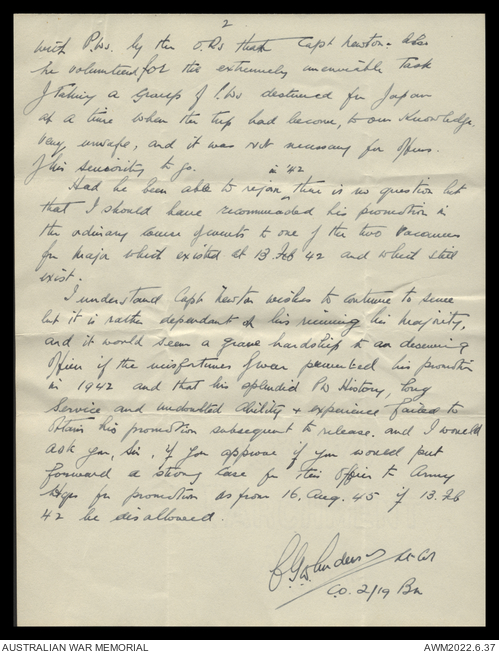 2
with P.Ws. by the O.Rs than Capt Newton. Also
he volunteered for the extremely unenviable task
of taking a Group of P.Ws destined for Japan
at a time when the trip had become, to our knowledge,
very unsafe, and it was not necessary for officers
of his seniority to go.
in '42
Had he been able to rejoin there is no question but
that I should have recommended his promotion in
the ordinary course of events to one of the two vacancies
for Major which existed at 13 Feb 42 and which still
exist.
I understand Capt Newton wishes to continue to serve
but it is rather dependant on his receiving his Majority,
and it would seem a grave hardship to a deserving
Officer if the misfortunes of war prevented his promotion
in 1942 and that his splendid PW History, long
Service and undoubted ability + experience failed to
obtain his promotion subsequent to release. and I would
ask you, Sir, if you approve if you would put
forward a strong case for this Officer to Army
Hqrs for promotion as from 16. Aug. 45 if 13. Feb
42 be disallowed.
C G W Anderson Lt Col
C.O. 2/19 Bn
AUSTRALIAN WAR MEMORIAL
AWM2022.6.37